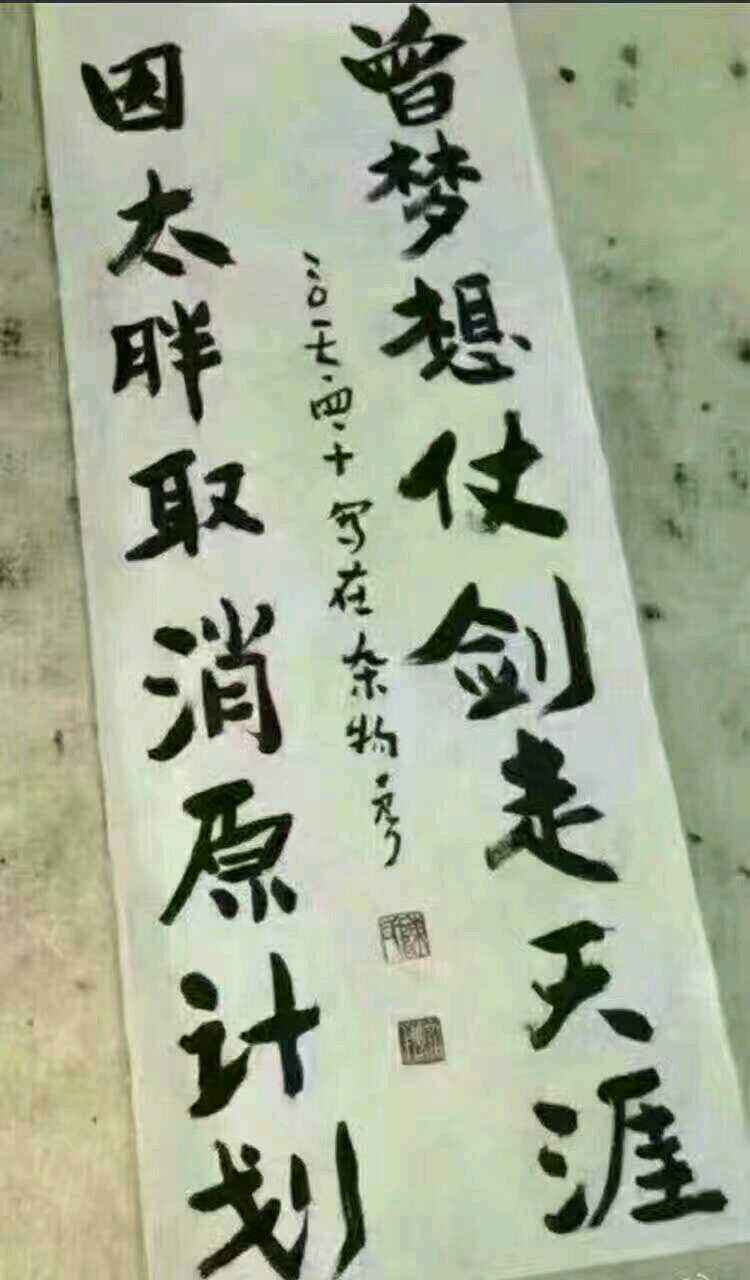 曾梦想仗剑走天涯
因太胖取消原计划
二〇一七.四.十写在杂物